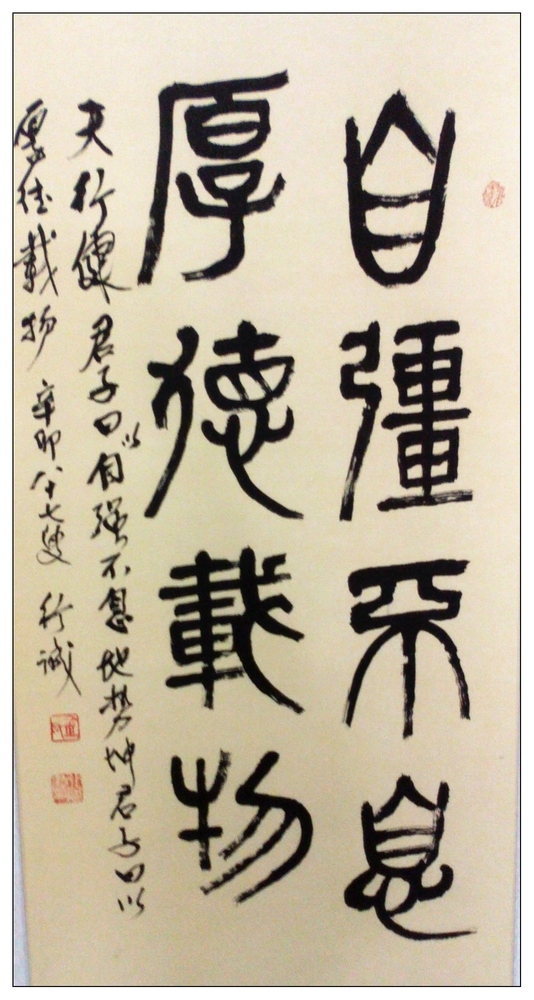 自彊不息
厚德載物
天行健君子曰以自强不息地势坤君子曰以
厚德載物 辛卯八十七叟 行诚